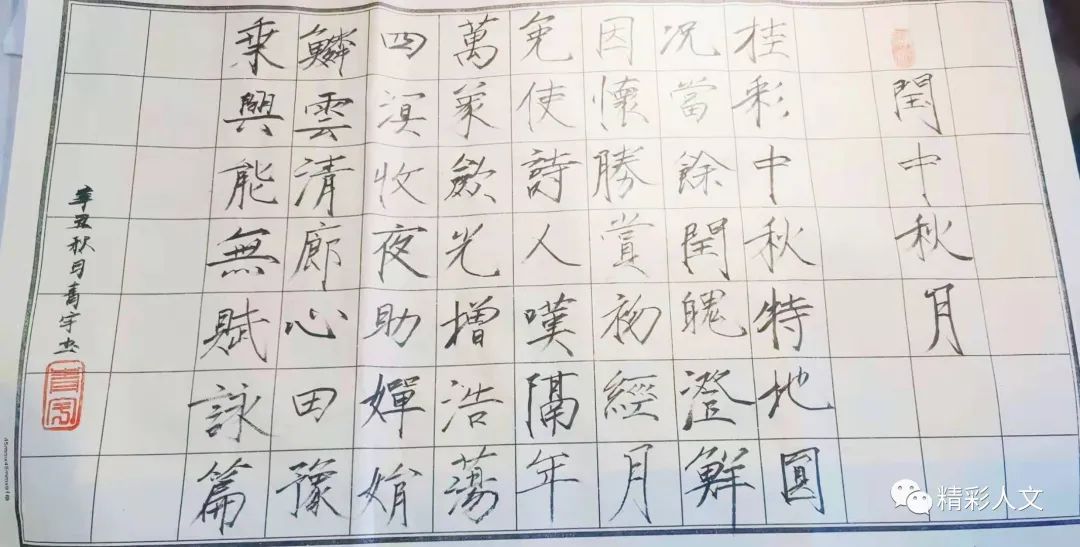 閏中秋月
桂彩中秋特地圓
况當餘閏魄澄鮮
因懷勝賞初經月
免使詩人嘆隔年
萬象斂光增浩蕩
四溟收夜助嬋娟
鱗雲清廓心田豫
乘興能無賦詠篇
辛丑秋月青宇书
青宇
精彩人文